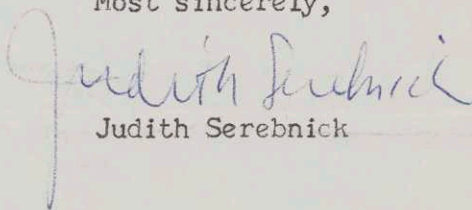 Most sincerely,
Judith Serebnick
Judith Serebnick